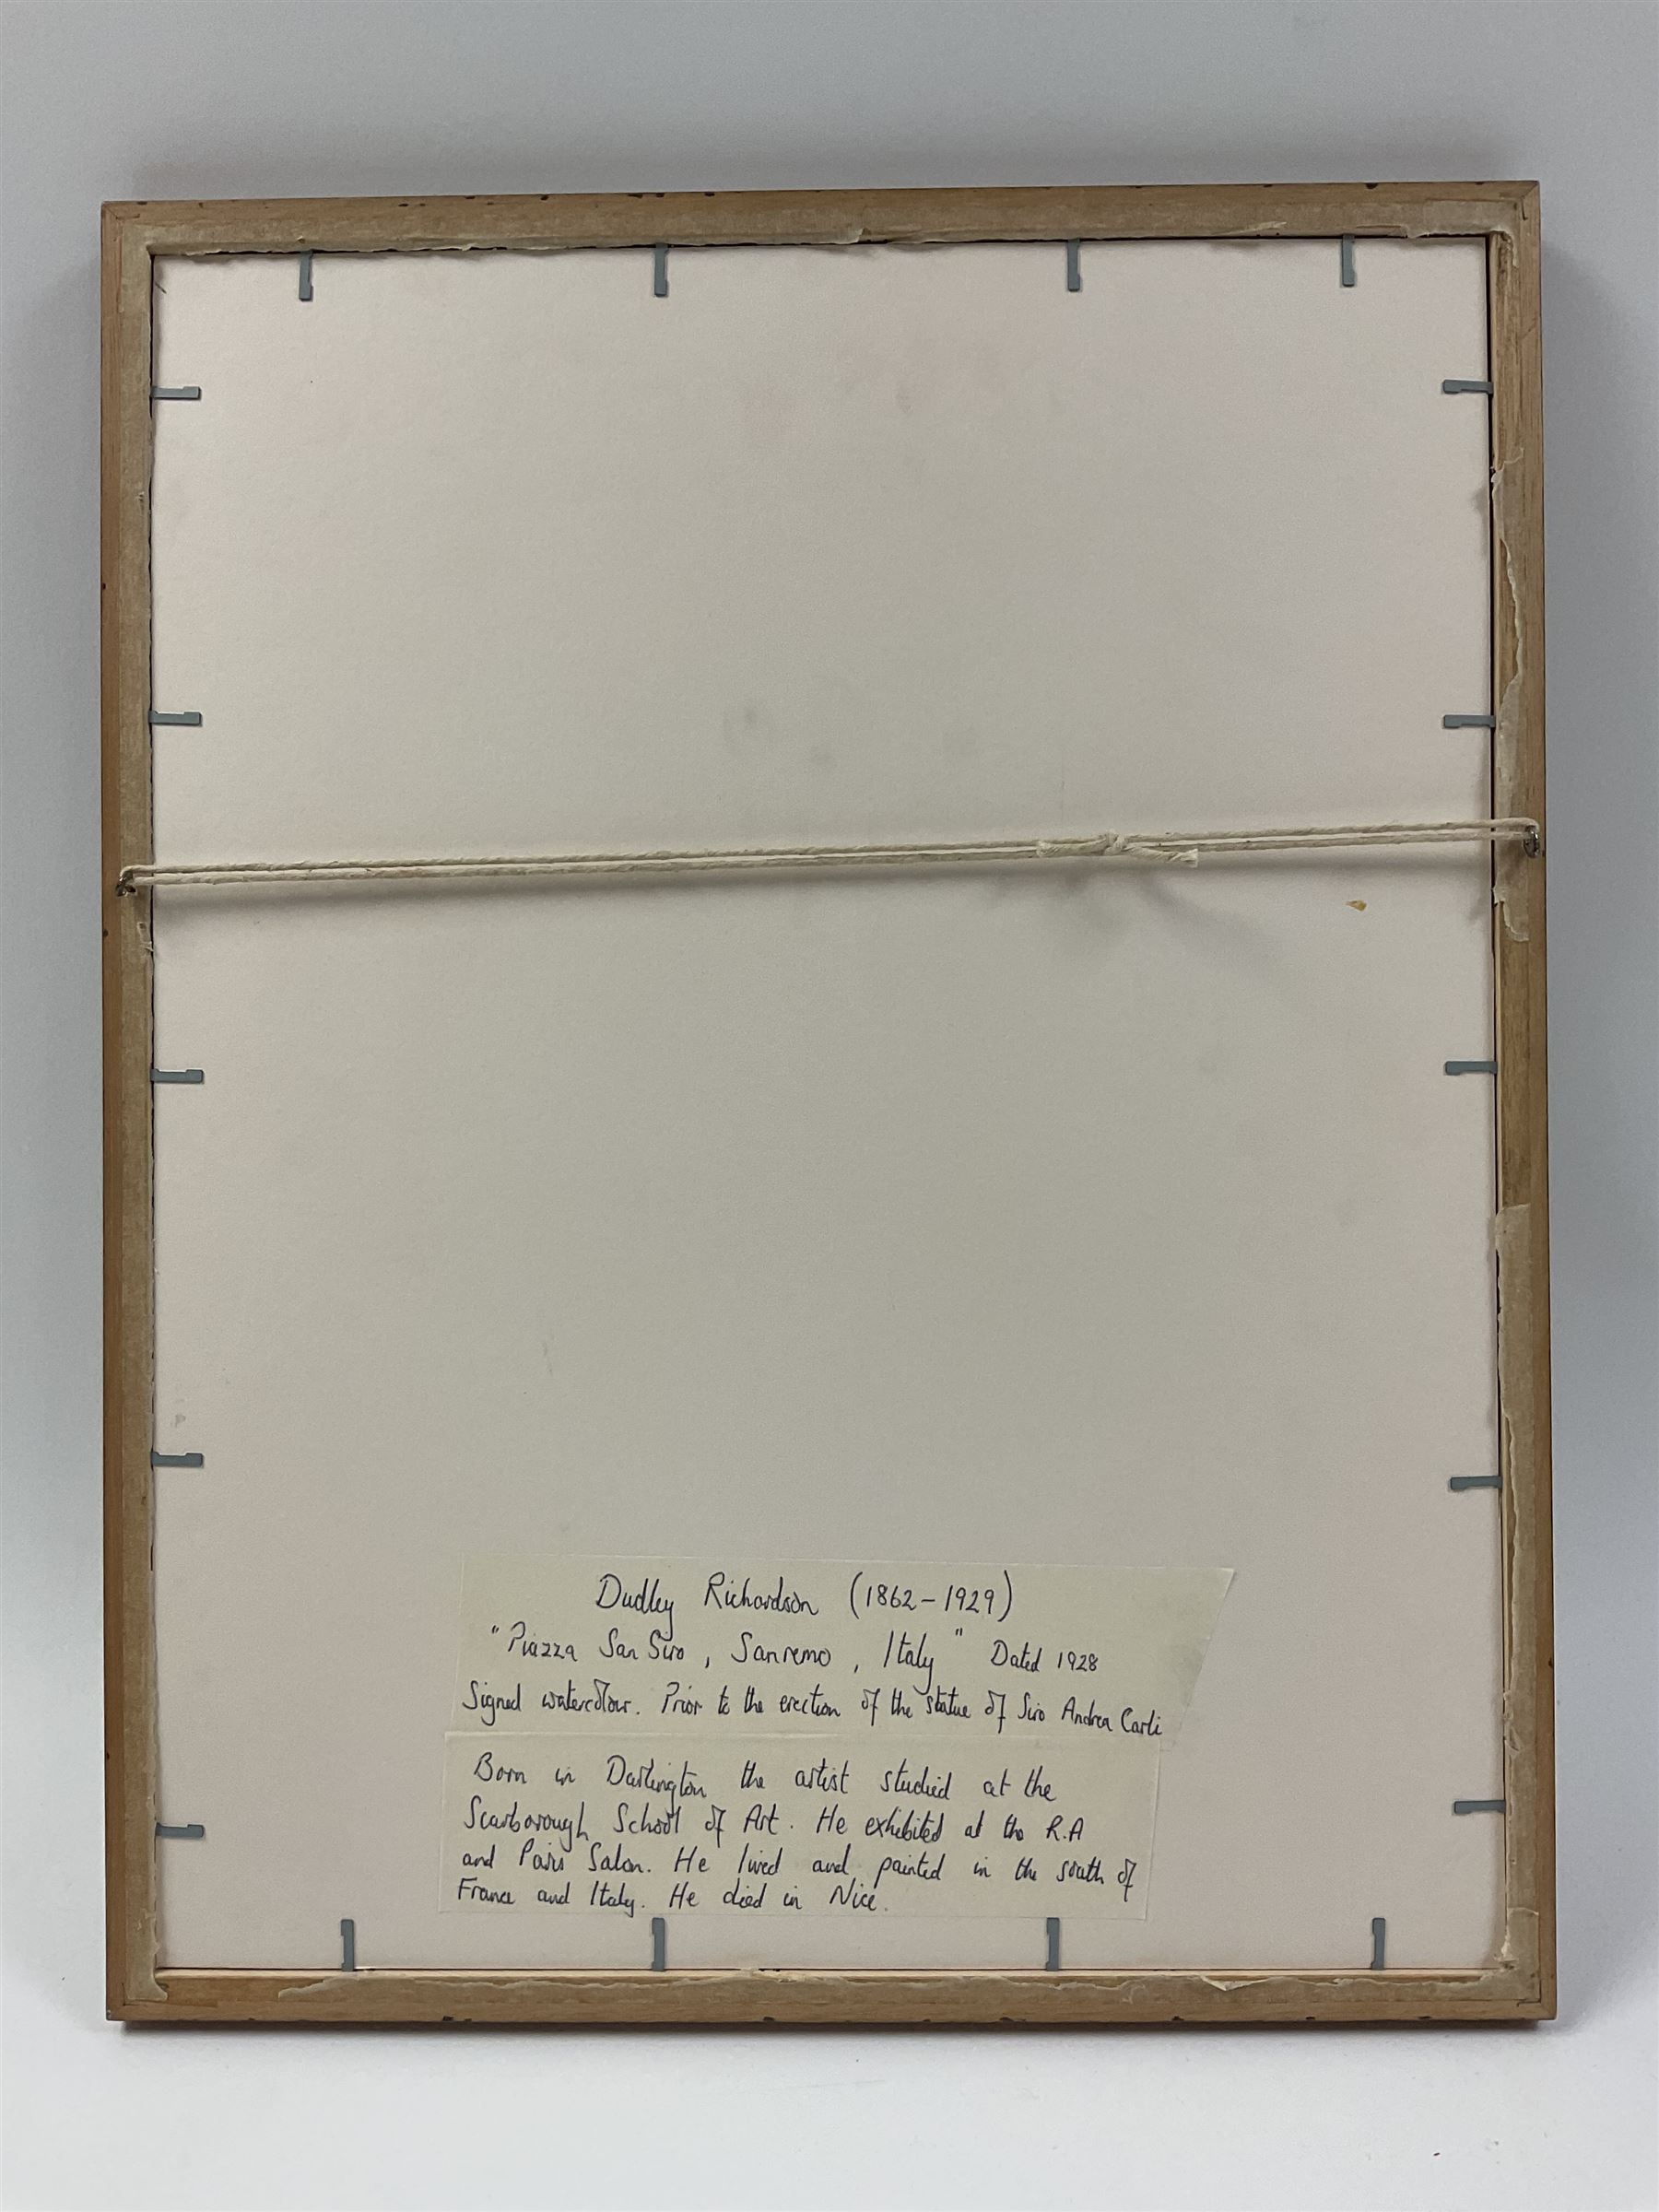 Dudley Richardson (1862-1929)
"Piazza San Siro, Sanremo, Italy" Dated 1928
Signed watercolour. Prior to the erection of the statue of Siro Andrea Carli
Born in Darlington the artist studied at the
Scarborough School of Art. He exhibited at the R.A
and Paris Salon. He lived and painted in the south of
France and Italy. He died in Nice.